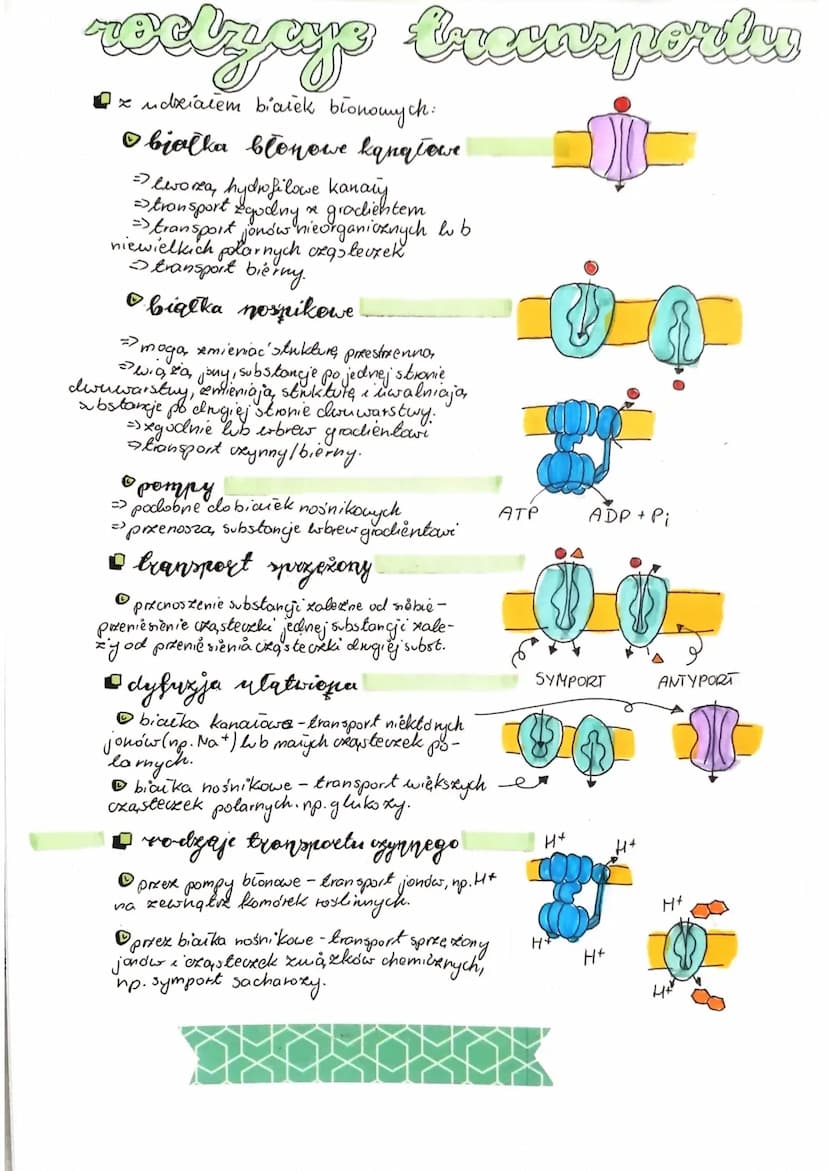 rodzaje transportu
z udziałem białek błonowych:
białka błonowe kanałowe
=> tworzą hydrofilowe kanały
=> transport zgodny z gradientem
=> transport jonów nieorganicznych lub
niewielkich polarnych cząsteczek
=> transport bierny.
białka nośnikowe
=> mogą zmieniać strukturę przestrzenną
=> wiążą jony, substancje po jednej stronie
dwuwarstwy, zmieniają strukturę i uwalniają
substancje po drugiej stronie dwuwarstwy.
=> zgodnie lub wbrew gradientowi
=> transport czynny/bierny.
pompy
=> podobne do białek nośnikowych
=> przenoszą substancje wbrew gradientowi
ATP ADP + Pi
transport sprzężony
przenoszenie substancji zależne od siebie -
przeniesienie cząsteczki jednej substancji zale-
ży od przeniesienia cząsteczki drugiej subst.
SYMPORT ANTYPORT
dyfuzja ułatwiona
białka kanałowe - transport niektórych
jonów (np. Na+) lub małych cząsteczek po-
larnych.
białka nośnikowe - transport większych
cząsteczek polarnych. np. glukozy.
rodzaje transportu czynnego
H+ H+
przez pompy błonowe - transport jonów, np. H+
na zewnątrz komórek roślinnych.
H+ H+
H+
przez białka nośnikowe - transport sprzężony
jonów i cząsteczek związków chemicznych,
np. symport sacharozy.
H+